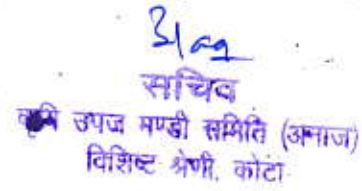 सचिव
कृषि उपज मण्डी समिति (अनाज)
विशिष्ट श्रेणी, कोटा